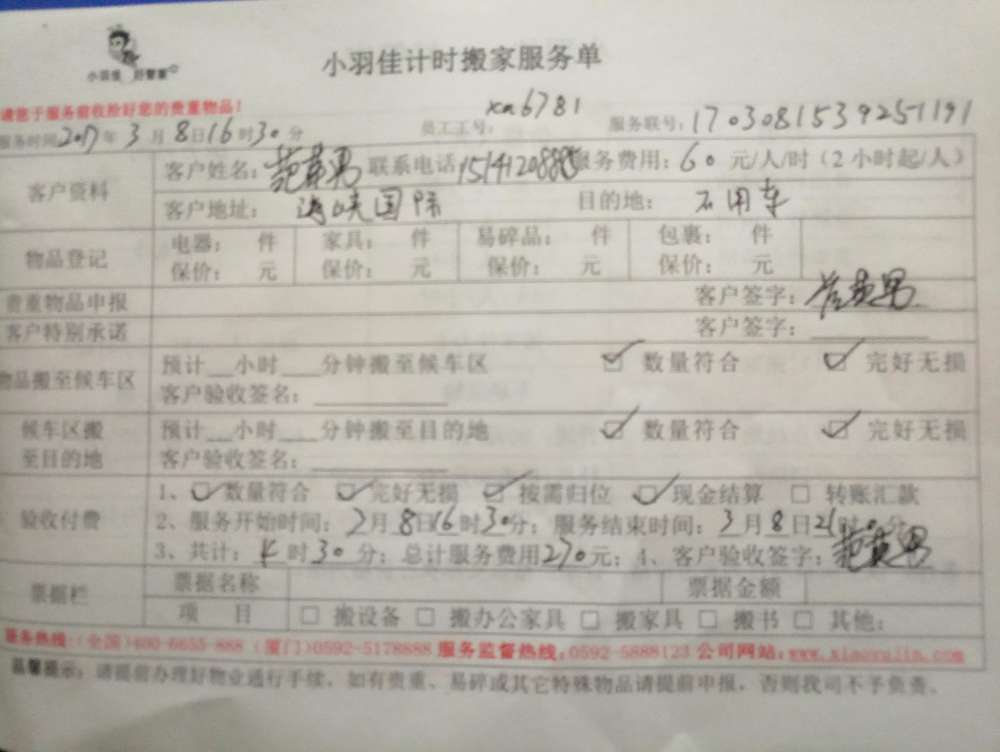 小羽佳 好管家
小羽佳计时搬家服务单
请您于服务前收捡好您的贵重物品！
服务时间2017年3月8日16时30分 员工工号：xm6781 服务联号：1703081539251191
客户资料 客户姓名： 联系电话 服务费用：60元/人/时（2小时起/人）
客户地址：海峡国际 目的地：不用车
物品登记 电器： 件 家具： 件 易碎品： 件 包裹： 件
保价： 元 保价： 元 保价： 元 保价： 元
贵重物品申报 客户签字：
客户特别承诺 客户签字：
物品搬至候车区 预计__小时___分钟搬至候车区 ☑ 数量符合 ☑ 完好无损
客户验收签名：
候车区搬至目的地 预计__小时___分钟搬至目的地 ☑ 数量符合 ☑ 完好无损
客户验收签名：
验收付费 1、☑数量符合 ☑完好无损 ☑按需归位 ☑现金结算 □ 转账汇款
2、服务开始时间：2月8日16时30分；服务结束时间：3月8日21时0分
3、共计：4时30分；总计服务费用270元；4、客户验收签字：
票据栏 票据名称 票据金额
项 目 □ 搬设备 □ 搬办公家具 □ 搬家具 □ 搬书 □ 其他：
服务热线：（全国）400-6655-888（厦门）0592-5178888 服务监督热线：0592-5888123 公司网站：www.xiaoyujia.com
温馨提示：请提前办理好物业通行手续，如有贵重、易碎或其它特殊物品请提前申报，否则我司不予负责。